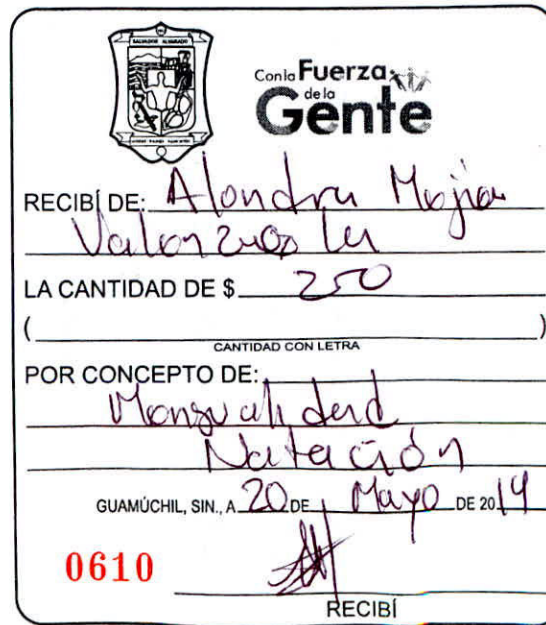 SALVADOR ALVARADO
Con la Fuerza
de la
Gente
RECIBÍ DE: Alondra Mejia
Valenzuela
LA CANTIDAD DE $ 250
( )
CANTIDAD CON LETRA
POR CONCEPTO DE:
Mensualidad
Natación
GUAMÚCHIL, SIN., A 20 DE Mayo DE 2014
0610
RECIBÍ